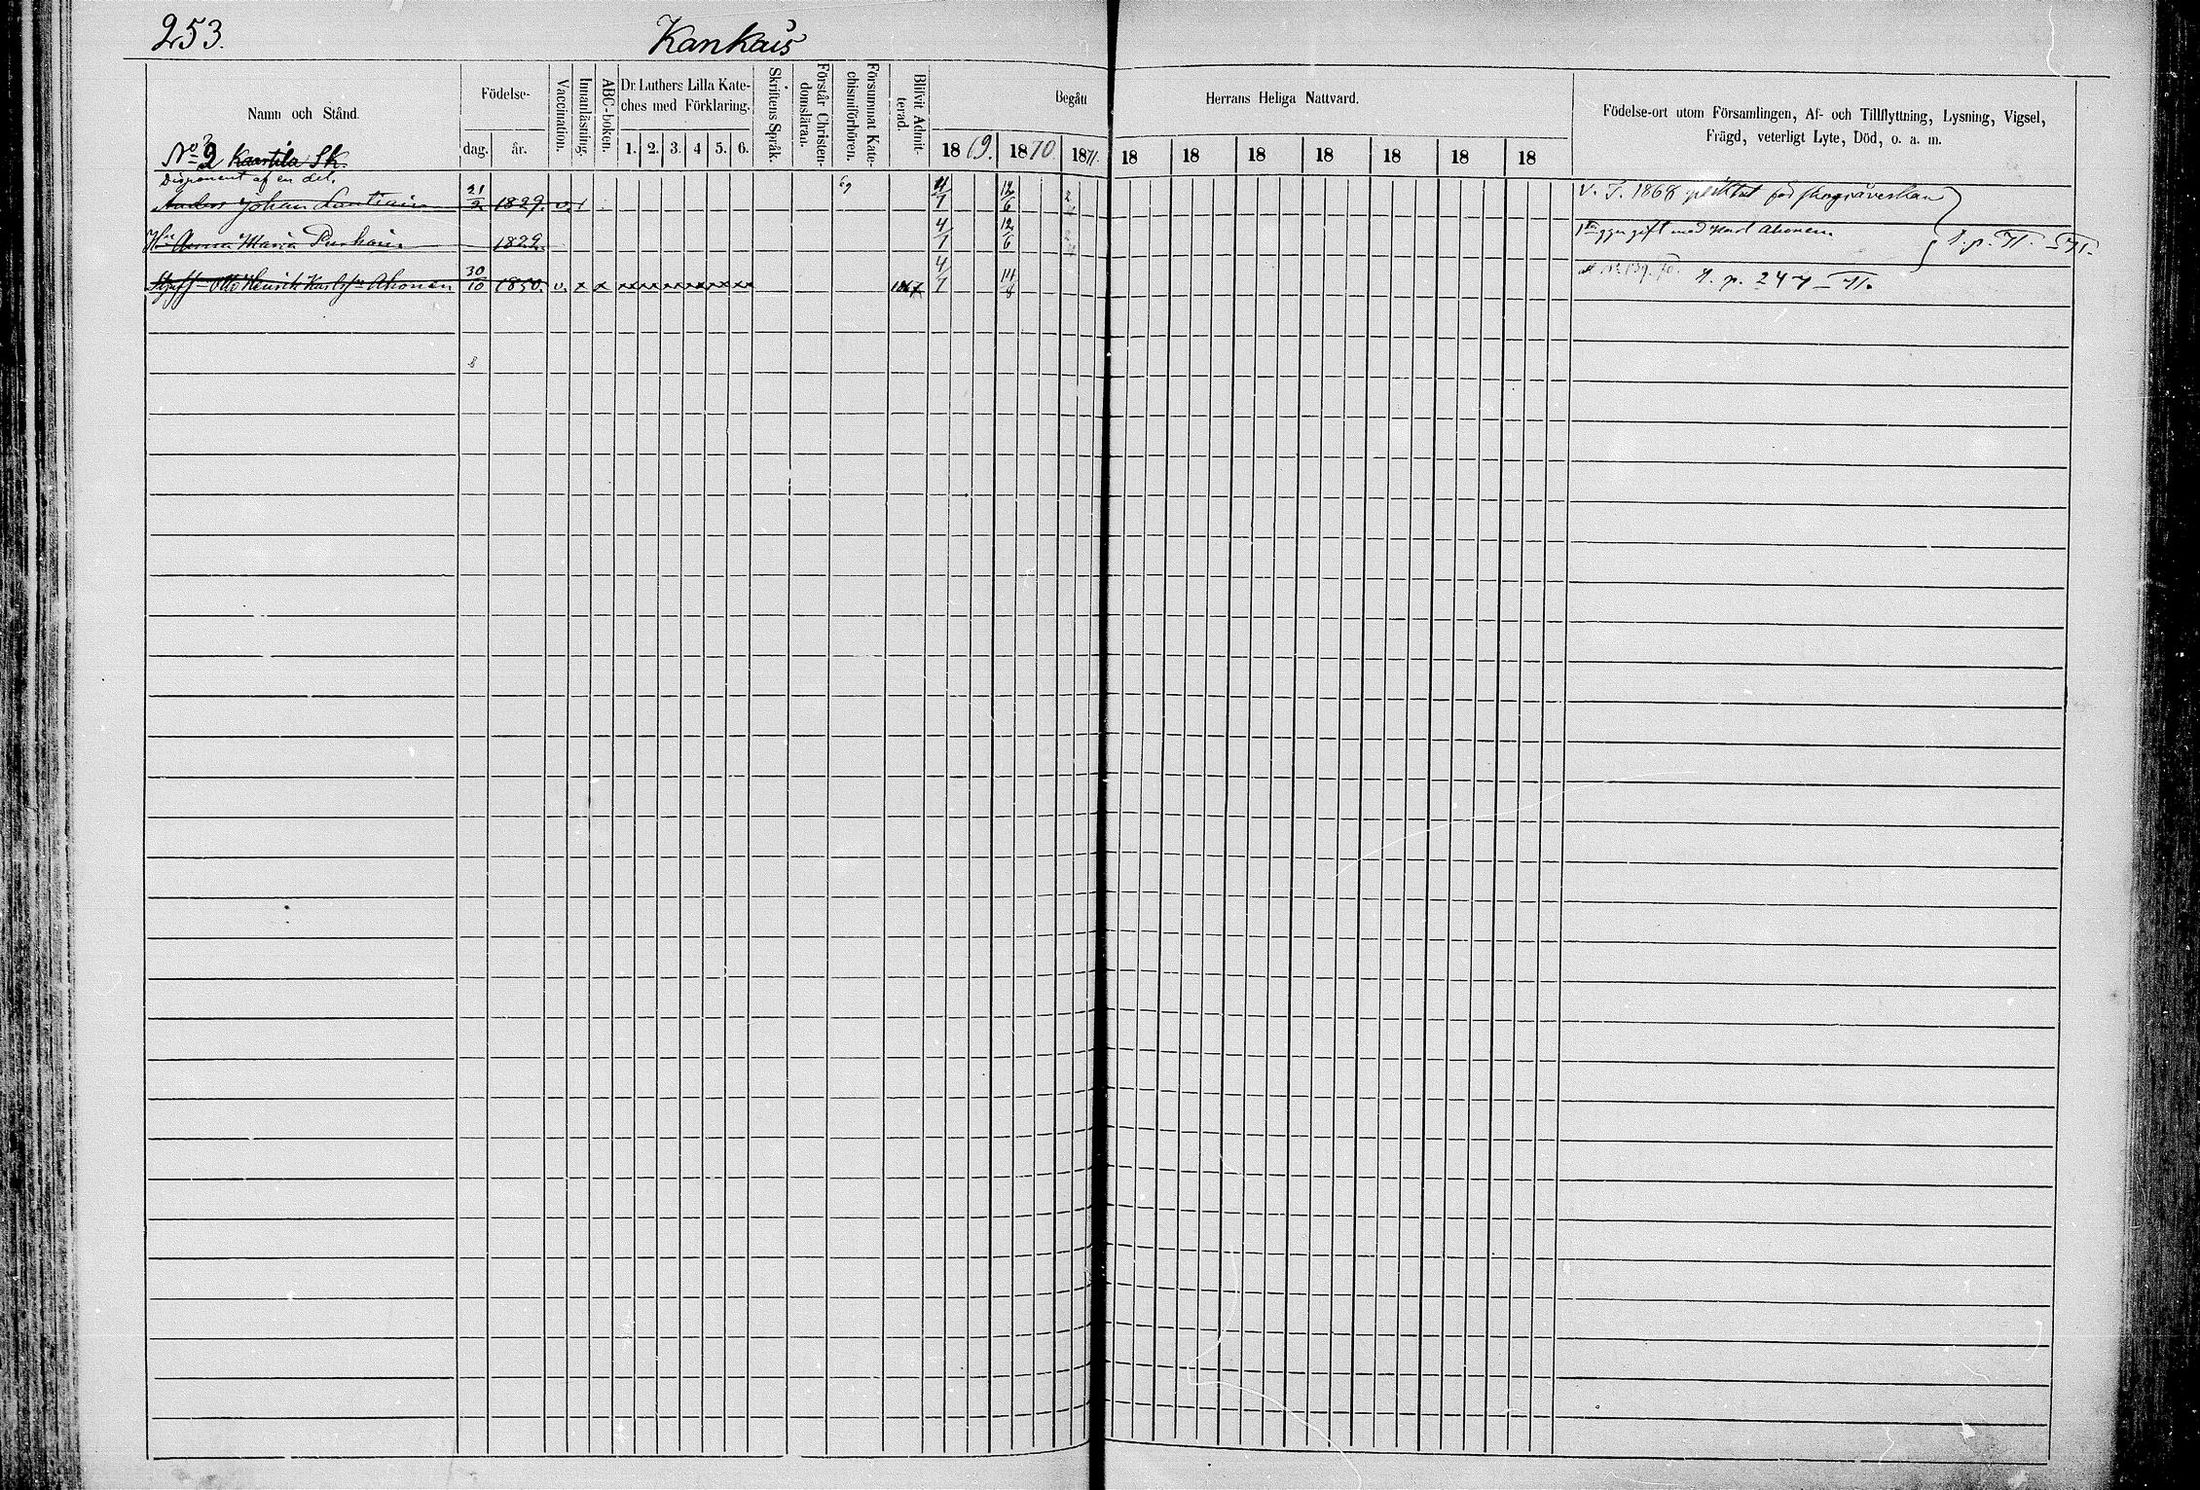 253.
Kankais
Namn och Stånd.
Födelse-
dag.
år.
Vaccination.
Innanläsning.
ABC-boken.
Dr. Luthers Lilla Kate-
ches med Förklaring.
1. 2. 3. 4 5. 6.
Skriftens Språk.
Förstår Christen-
domsläran.
Försummat Kate-
chismiförhören.
Blifvit Admit-
terad.
Begått Herrans Heliga Nattvard.
1869. 1870 1871. 18 18 18 18 18 18 18
Födelse-ort utom Församlingen, Af- och Tillflyttning, Lysning, Vigsel,
Frägd, veterligt Lyte, Död, o. a. m.
No 2 Kaartila Sk.
Disponent af en del.
Anders Johan 21/2 1829. v. 69 4/1 12/6 v. T. 1868 pliktat för
Hu Anna Maria 1829. 4/1 12/6 gift med Karl Ahonen.
Otto Henrik Karlsn Ahonen 30/10 1850. v. x x xx xx xx xx xx xx 1867 4/1 14/8 p. 247 — 71.
8